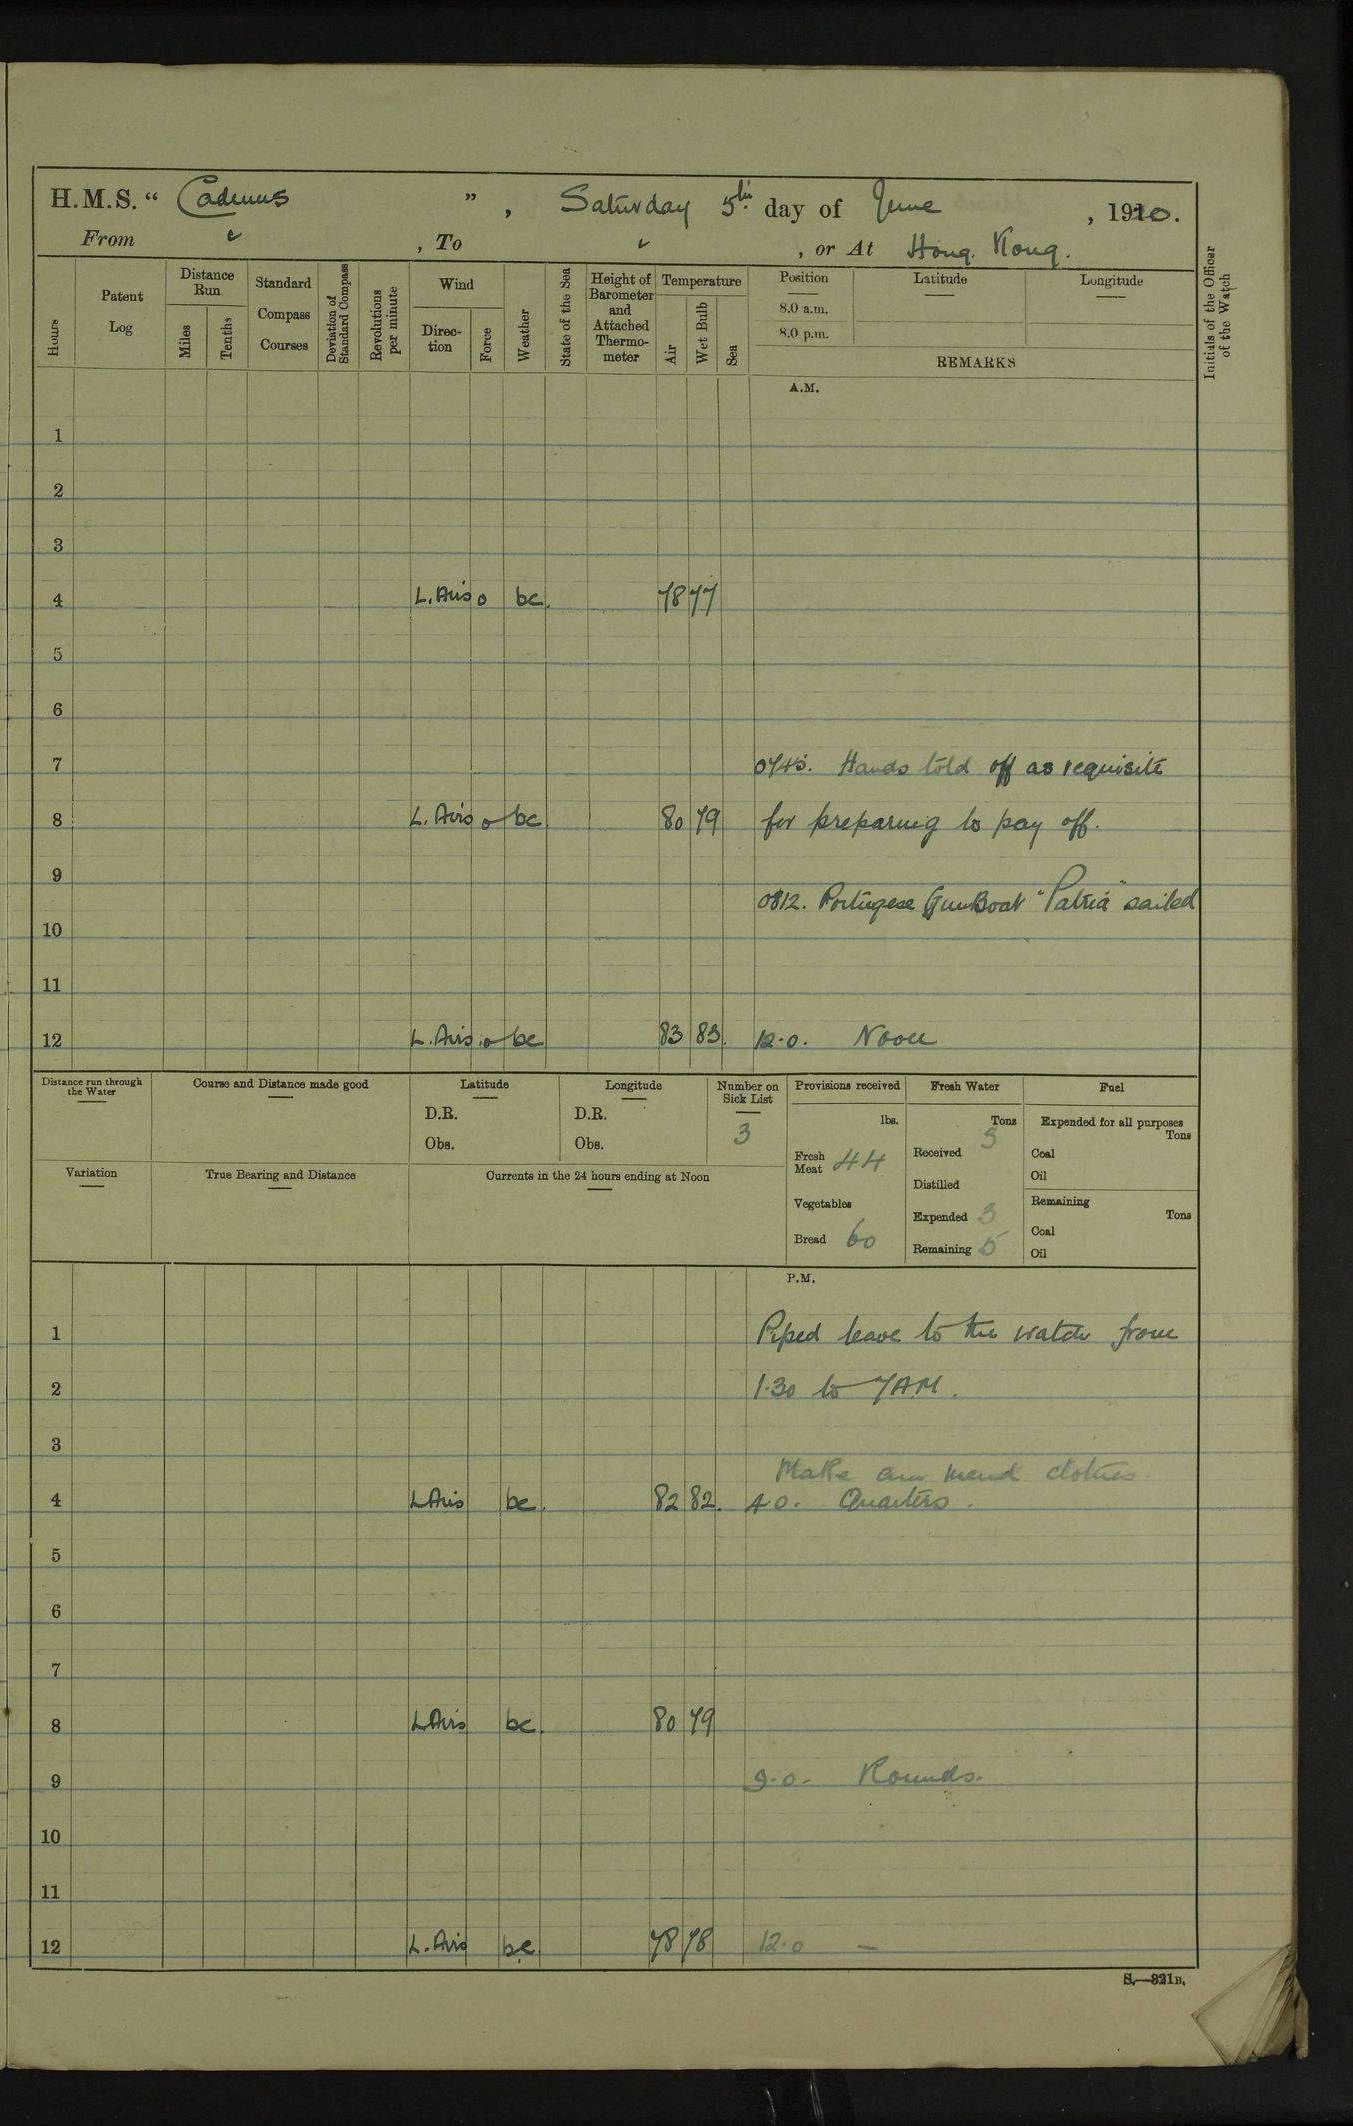 H.M.S. “ Cadmus ” , Saturday 5th day of June , 1920.
From , To , or At Hong Kong.
Hours Patent Log Distance Run Miles Tenths Standard Compass Courses Deviation of Standard Compass Revolutions per minute Wind Direc-tion Force Weather State of the Sea Height of Barometer and Attached Thermo-meter Temperature Air Wet Bulb Sea Position 8.0 a.m. 8.0 p.m. Latitude Longitude REMARKS Initials of the Officer of the Watch
A.M.
1
2
3
4 L. Airs 0 bc. 78 77
5
6
7 0745. Hands told off as requisite
8 L. Airs 0 bc 80 79 for preparing to pay off.
9
0812. Portugese GunBoat "Patria" sailed
10
11
12 L. Airs 0 bc 83 83. 12.0. Noon
Distance run through the Water Course and Distance made good Latitude Longitude Number on Sick List Provisions received Fresh Water Fuel
D.R. D.R. lbs. Tons Expended for all purposes Tons
Obs. Obs. 3 Fresh Meat 44 Received 5 Coal
Variation True Bearing and Distance Currents in the 24 hours ending at Noon Distilled Oil
Vegetables Expended 3 Remaining Tons
Bread 60 Remaining 5 Coal
Oil
P.M.
1 Piped leave to the watch from
2 1.30 to 7AM.
3
Make and mend clothes
4 L Airs bc. 82 82. 4.0. Quarters.
5
6
7
8 L Airs bc. 80 79
9 9.0. Rounds.
10
11
12 L. Airs bc 78 78 12.0 —
S.—321B.